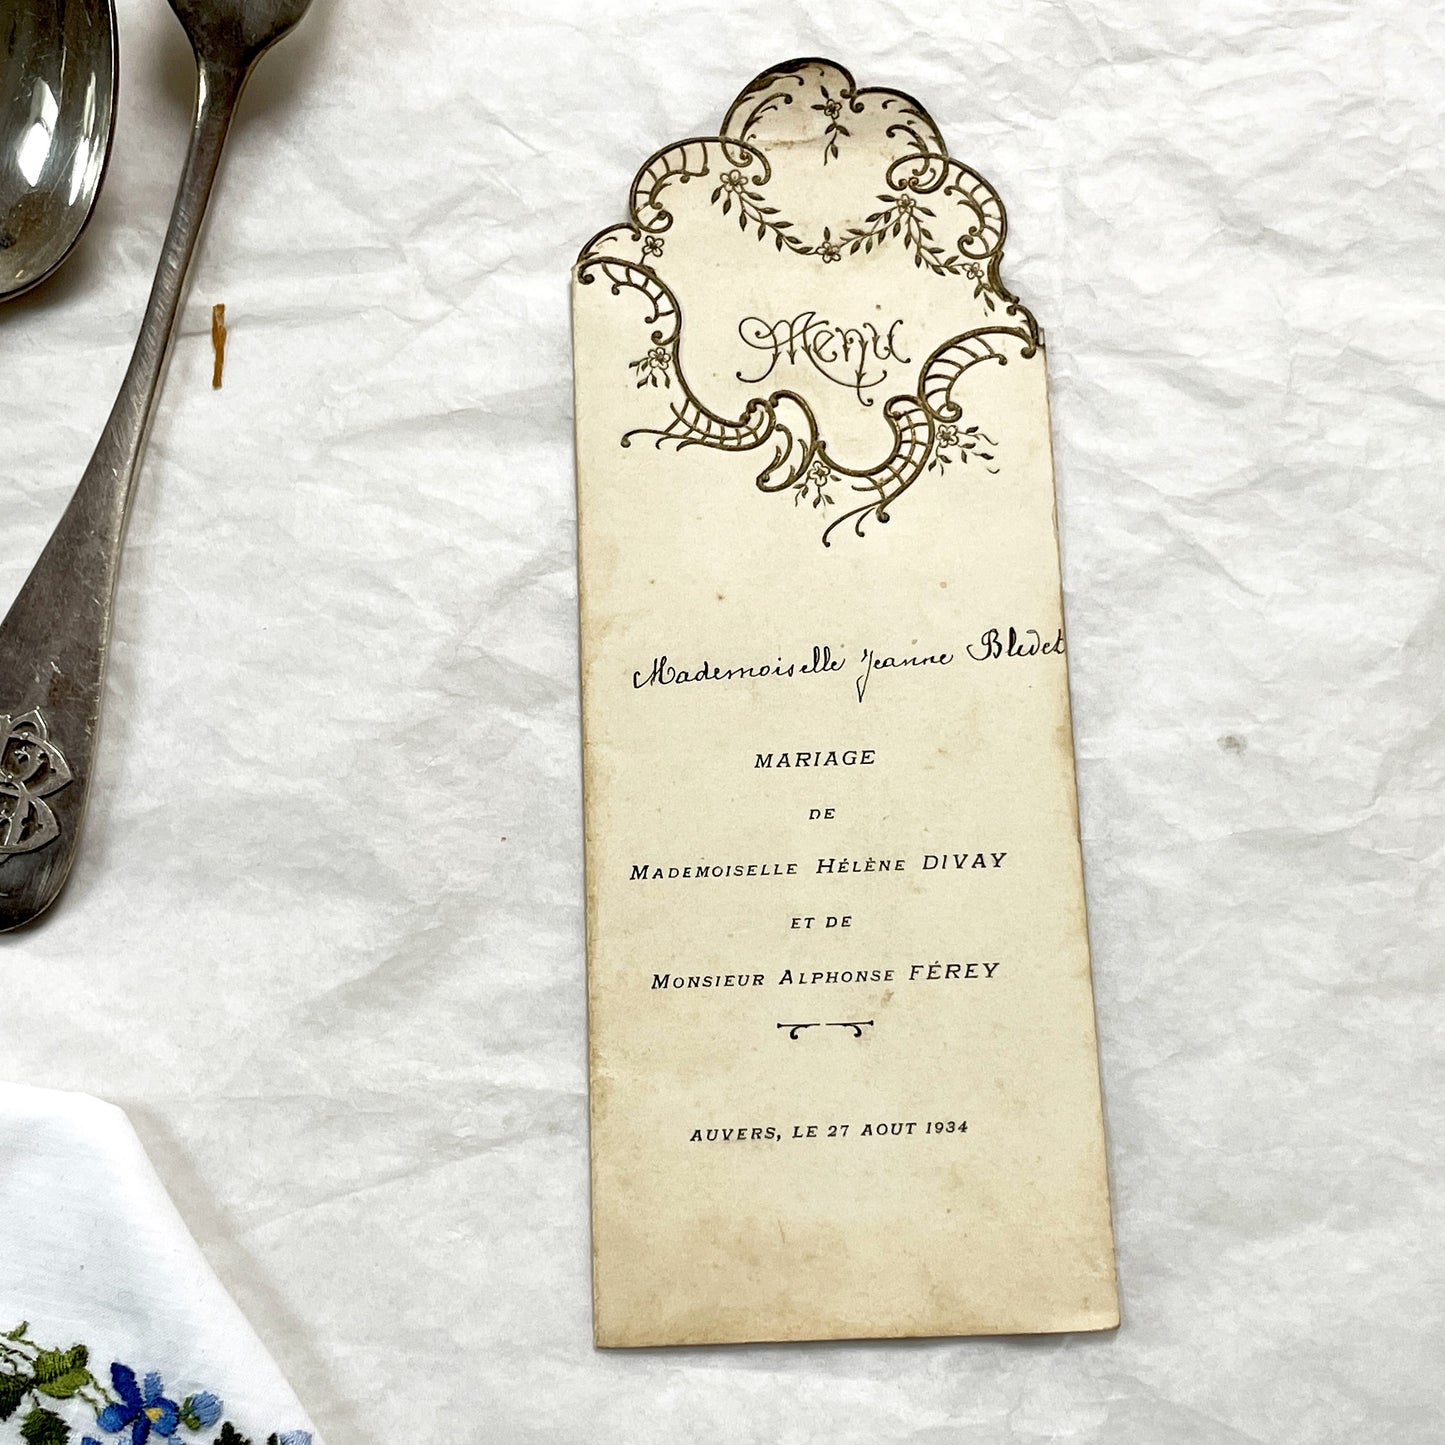 Menu
Mademoiselle Jeanne Bledet
MARIAGE
DE
MADEMOISELLE HÉLÈNE DIVAY
ET DE
MONSIEUR ALPHONSE FÉREY
AUVERS, LE 27 AOUT 1934